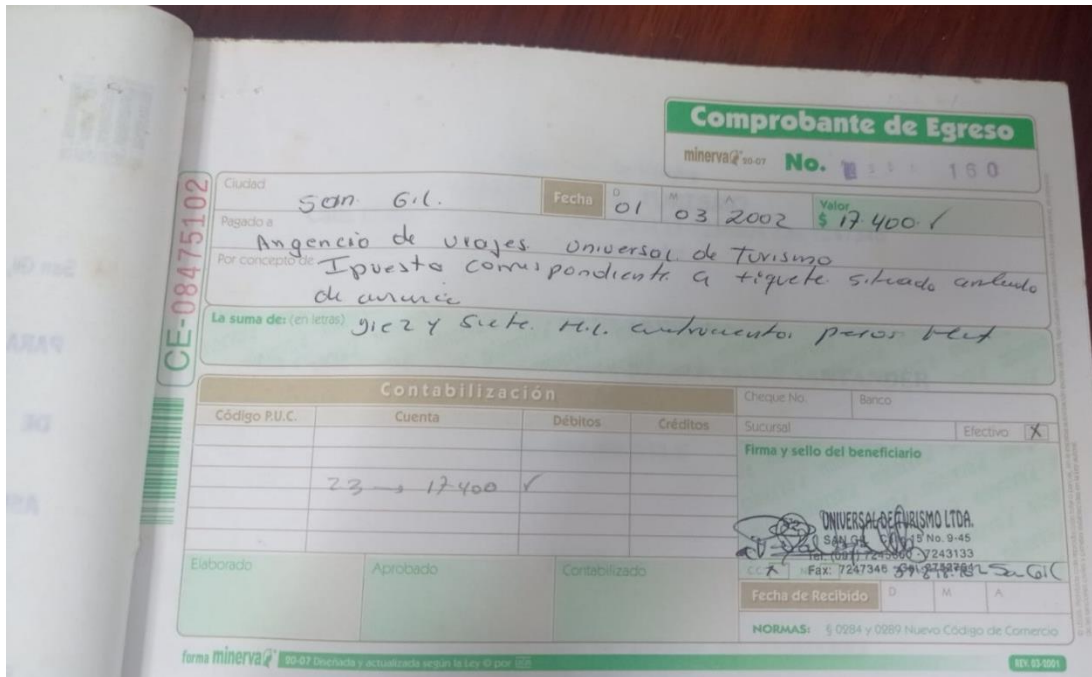 Comprobante de Egreso
minerva 20-07 No. 160
CE-08475102
Ciudad San Gil. Fecha D 01 M 03 A 2002 Valor $ 17.400.
Pagado a Angencia de viajes Universal de Turismo
Por concepto de Ipuesto correspondiente a tiquete situado
de
La suma de: (en letras) Diez y Siete Mil cuatrocientos pesos
Contabilización
Código P.U.C. Cuenta Débitos Créditos
23 → 17.400 ✓
Cheque No. Banco
Sucursal Efectivo X
Firma y sello del beneficiario
UNIVERSAL DE TURISMO LTDA.
SAN GIL No. 9-45
7243133
Fax: 7247346 San Gil
Elaborado Aprobado Contabilizado
Fecha de Recibido D M A
NORMAS: § 0284 y 0289 Nuevo Código de Comercio
forma minerva 20-07 Diseñada y actualizada según la Ley © por
REV. 03-2001
PARA
DE